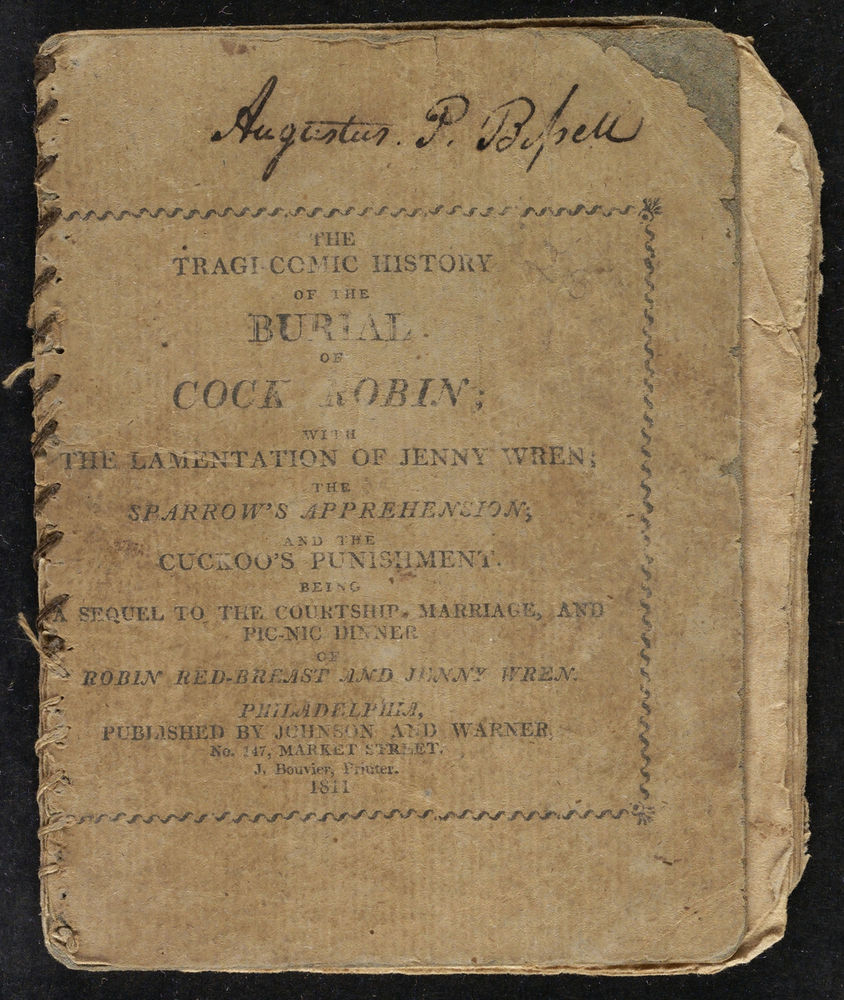 Augustus. P. Biſsell
THE
TRAGI-COMIC HISTORY
OF THE
BURIAL
OF
COCK ROBIN;
WITH
THE LAMENTATION OF JENNY WREN;
THE
SPARROW'S APPREHENSION;
AND THE
CUCKOO'S PUNISHMENT.
BEING
A SEQUEL TO THE COURTSHIP, MARRIAGE, AND
PIC-NIC DINNER
OF
ROBIN RED-BREAST AND JENNY WREN.
PHILADELPHIA,
PUBLISHED BY JOHNSON AND WARNER,
No. 147, MARKET STREET.
J. Bouvier, Printer.
1811